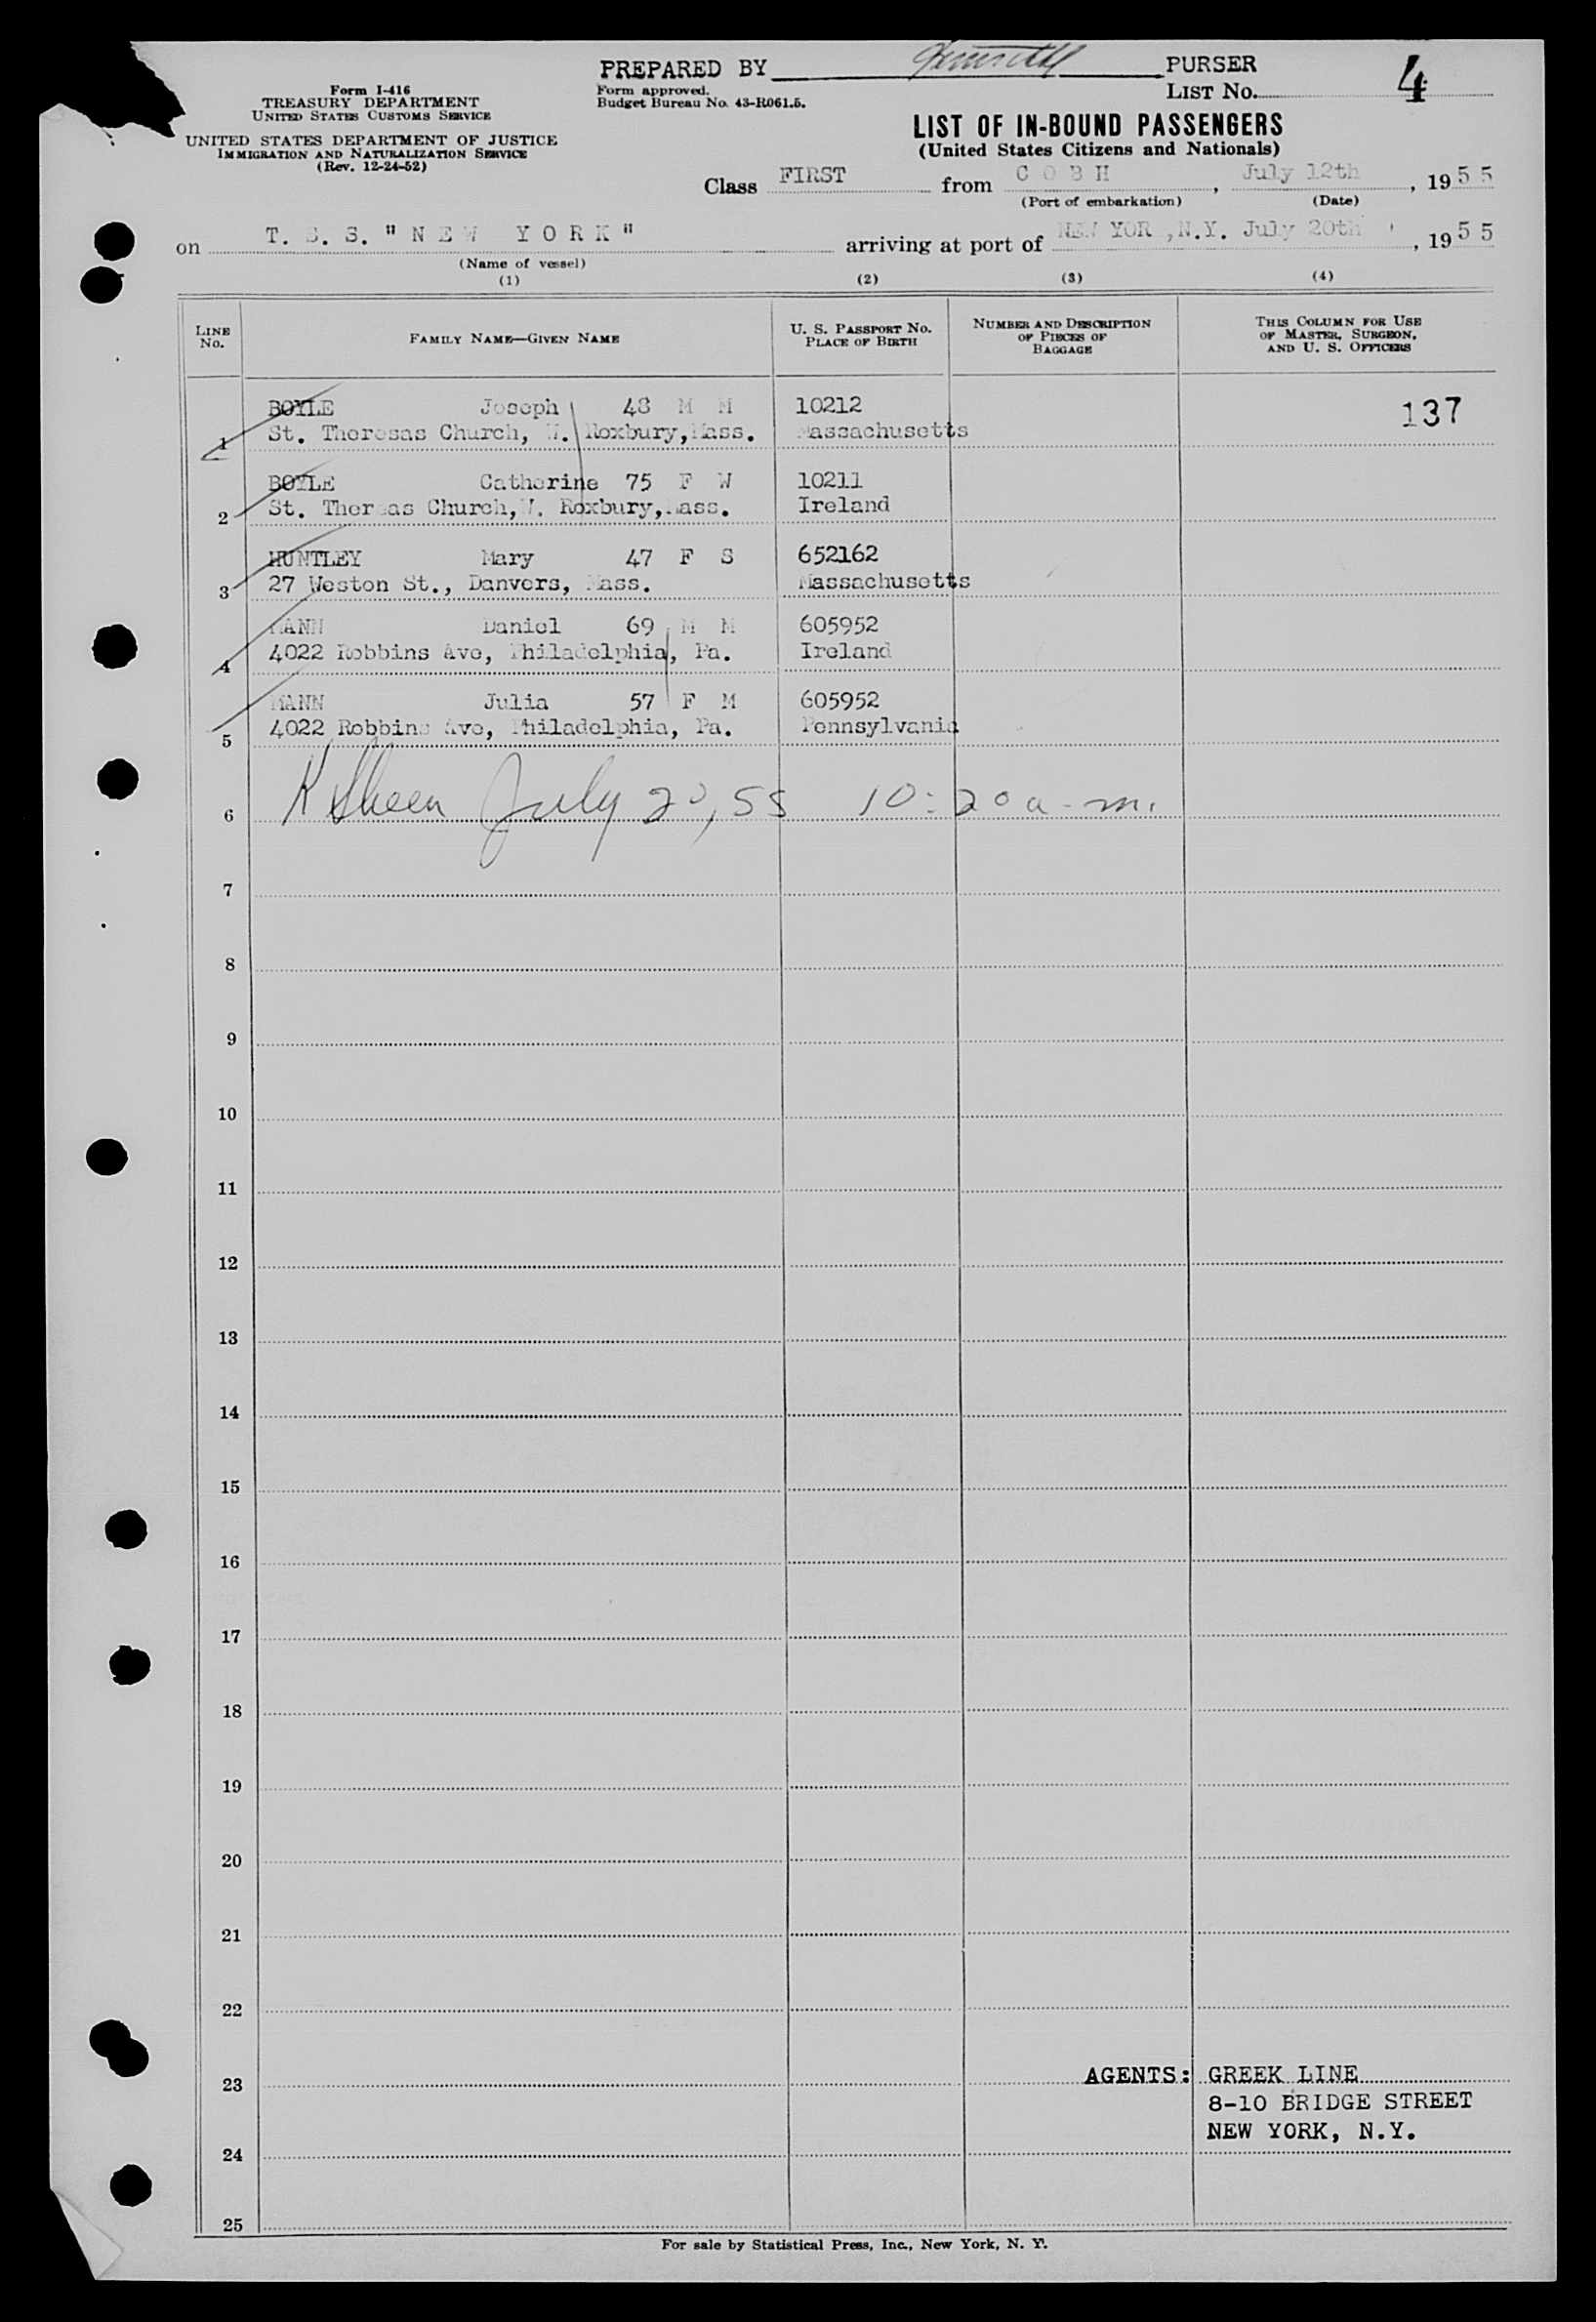 PREPARED BY PURSER
Form I-416
TREASURY DEPARTMENT
UNITED STATES CUSTOMS SERVICE
UNITED STATES DEPARTMENT OF JUSTICE
IMMIGRATION AND NATURALIZATION SERVICE
(Rev. 12-24-52)
Form approved.
Budget Bureau No. 43-R061.5.
LIST No. 4
LIST OF IN-BOUND PASSENGERS
(United States Citizens and Nationals)
Class FIRST from C O B H, July 12th, 19 5 5
(Port of embarkation) (Date)
on T. S. S. "N E W Y O R K" arriving at port of NEW YOR ,N.Y. July 20th, 19 5 5
(Name of vessel)
(1) (2) (3) (4)
LINE No. FAMILY NAME—GIVEN NAME U. S. PASSPORT No. PLACE OF BIRTH NUMBER AND DESCRIPTION OF PIECES OF BAGGAGE THIS COLUMN FOR USE OF MASTER, SURGEON, AND U. S. OFFICERS
BOYLE Joseph 48 M M 10212 137
1 St. Theresas Church, W. Roxbury, Mass. Massachusetts
BOYLE Catherine 75 F W 10211
2 St. Ther sas Church, W. Roxbury, Mass. Ireland
HUNTLEY Mary 47 F S 652162
3 27 Weston St., Danvers, Mass. Massachusetts
MANN Daniel 69 M M 605952
4 4022 Robbins Ave, Philadelphia, Pa. Ireland
MANN Julia 57 F M 605952
5 4022 Robbins Ave, Philadelphia, Pa. Pennsylvania
6 K Sheen July 20, 55 10:20 a-m.
7
8
9
10
11
12
13
14
15
16
17
18
19
20
21
22
23 AGENTS: GREEK LINE
8-10 BRIDGE STREET
NEW YORK, N.Y.
24
25
For sale by Statistical Press, Inc., New York, N. Y.